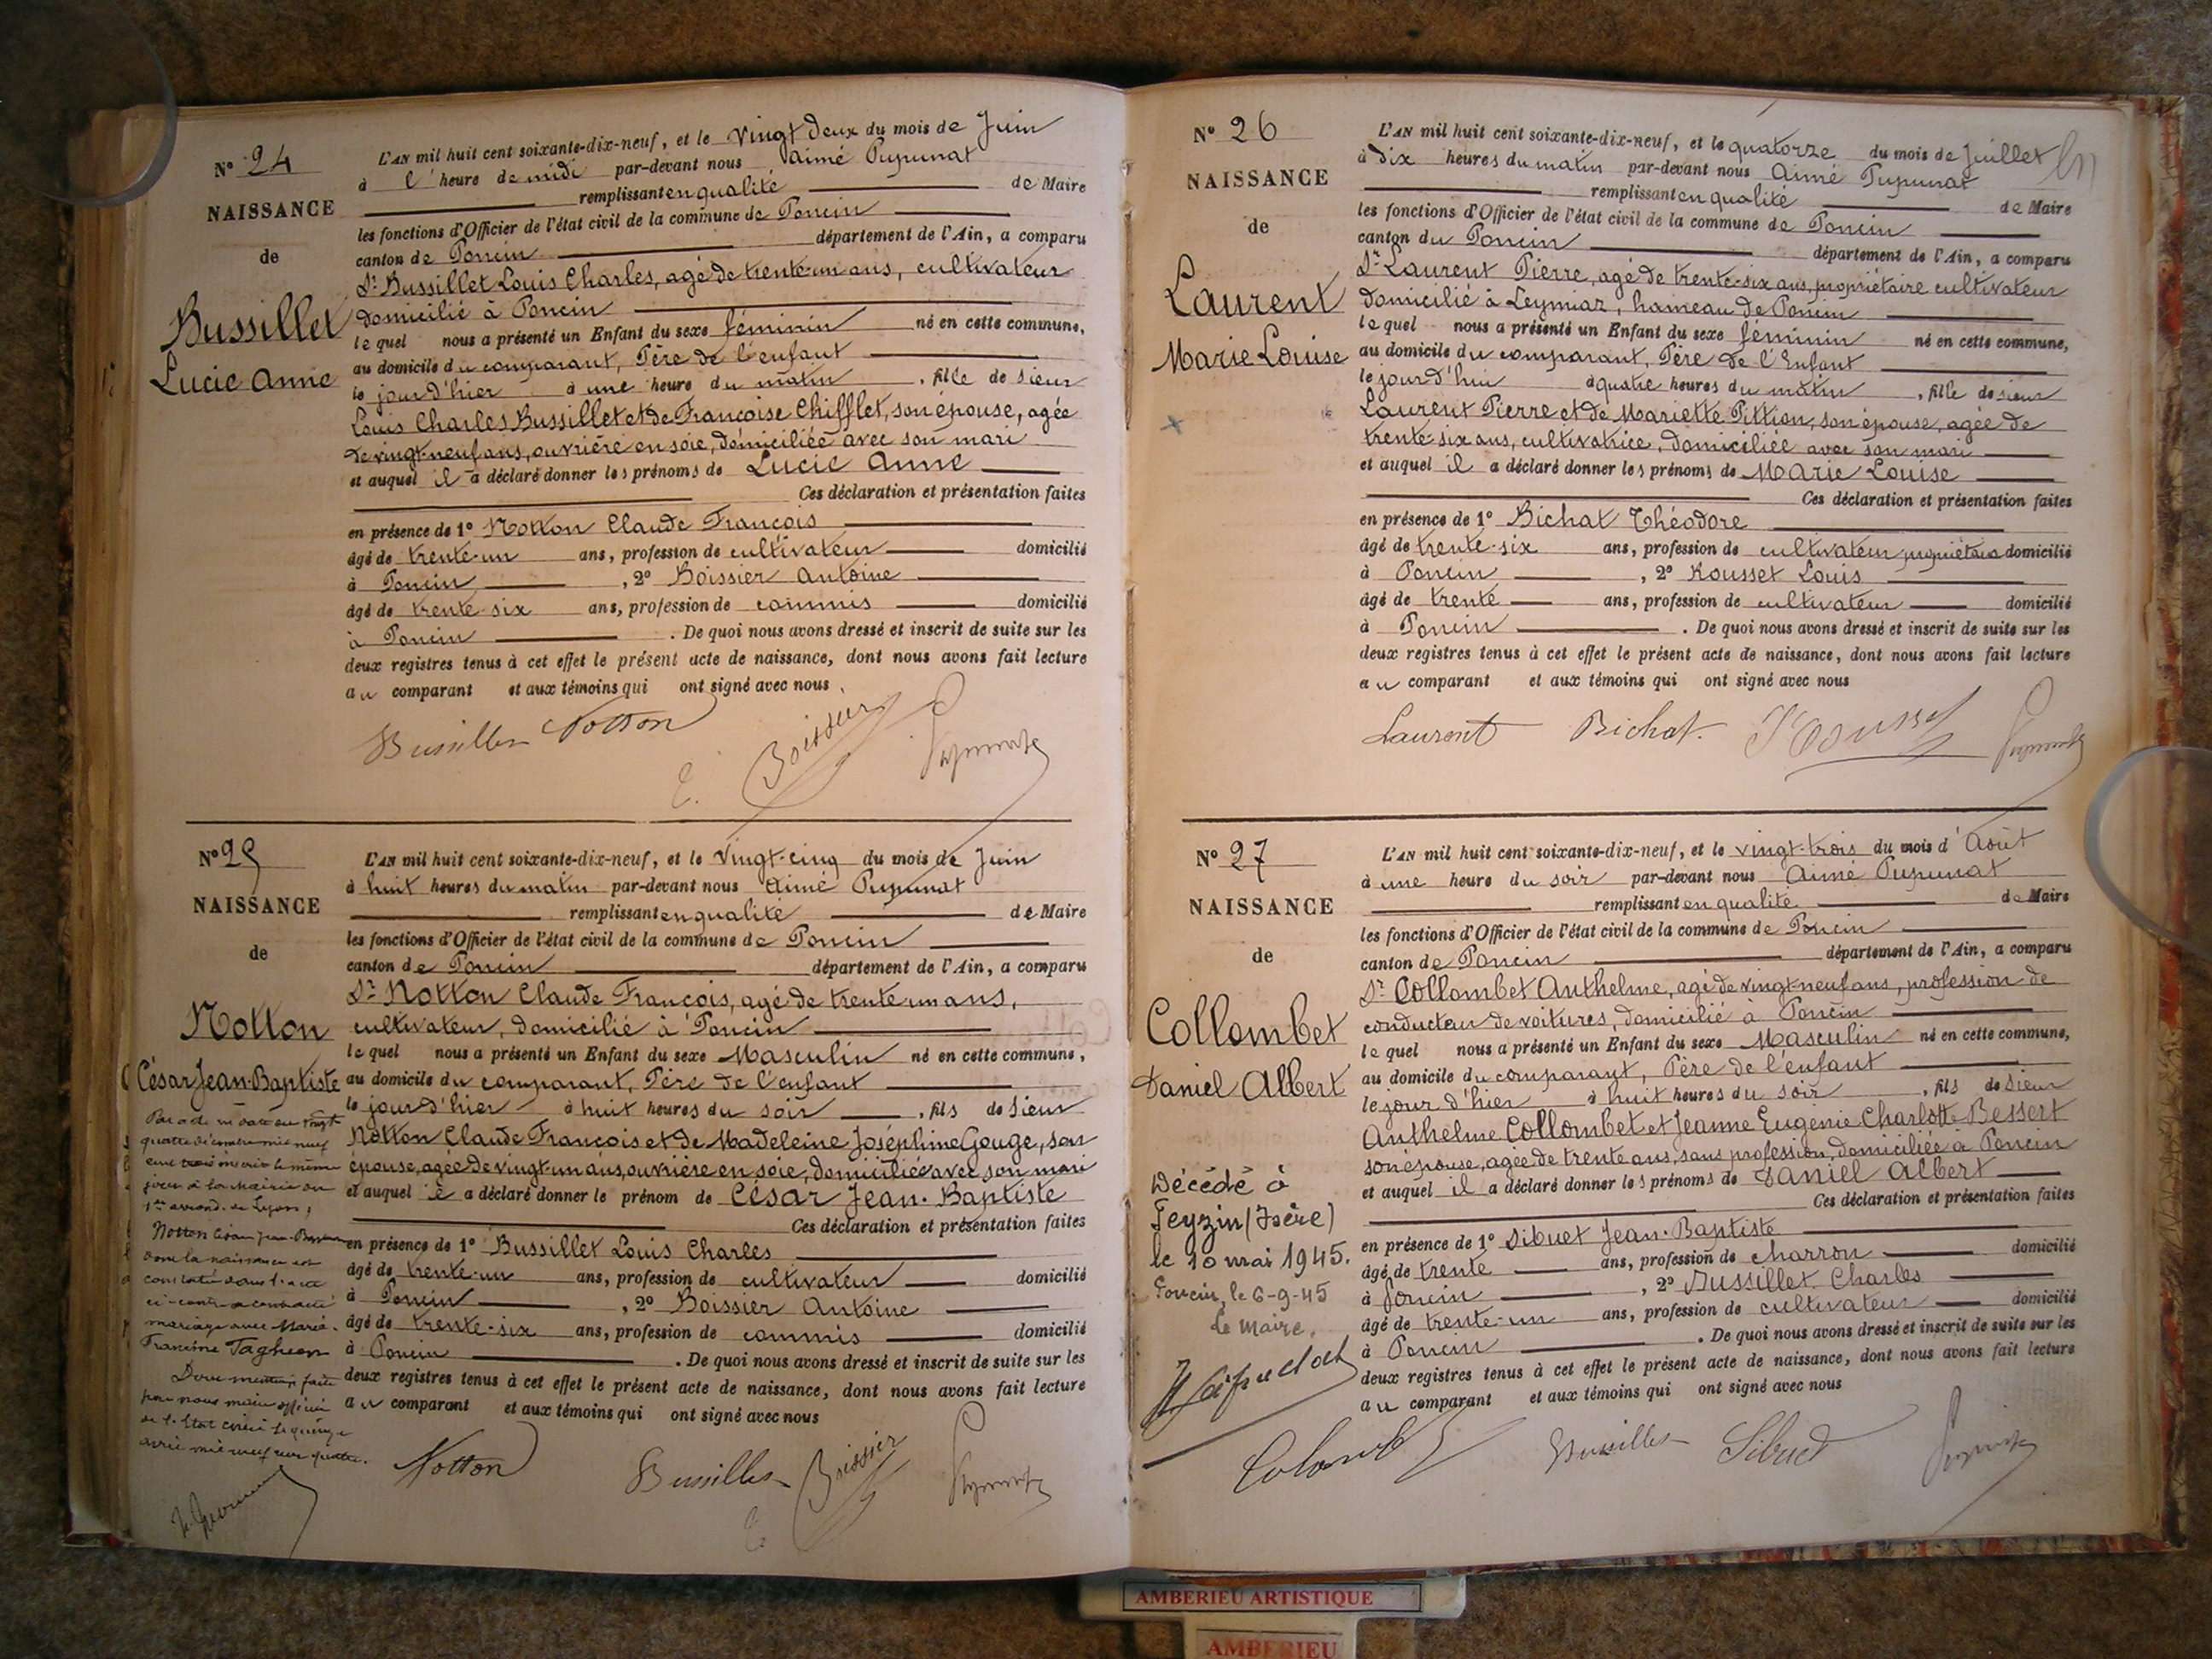 N° 24
NAISSANCE
de
Bussillet
Lucie Anne
L'AN mil huit cent soixante-dix-neuf, et le Vingt Deux du mois de Juin
à l'heure de midi par-devant nous Aimé Pupunat
remplissant en qualité de Maire
les fonctions d'Officier de l'état civil de la commune de Poncin
canton de Poncin département de l'Ain, a comparu
Sr Bussillet Louis Charles, agé de trente-un ans, cultivateur
domicilié à Poncin
lequel nous a présenté un Enfant du sexe féminin né en cette commune,
au domicile du comparant, Père de l'enfant
le jour d'hier à une heure du matin, fille de sieur
Louis Charles Bussillet et de Françoise Chifflet, son épouse, agée
de vingt-neuf ans, ouvrière en soie, domiciliée avec son mari
et auquel il a déclaré donner les prénoms de Lucie Anne
Ces déclaration et présentation faites
en présence de 1° Notton Claude François
âgé de trente-un ans, profession de cultivateur domicilié
à Poncin, 2° Boissier Antoine
âgé de trente-six ans, profession de commis domicilié
à Poncin. De quoi nous avons dressé et inscrit de suite sur les
deux registres tenus à cet effet le présent acte de naissance, dont nous avons fait lecture
au comparant et aux témoins qui ont signé avec nous.
Bussillet Notton Boissier
N° 25
NAISSANCE
de
Notton
César Jean-Baptiste
L'AN mil huit cent soixante-dix-neuf, et le Vingt-cinq du mois de Juin
à huit heures du matin par-devant nous Aimé Pupunat
remplissant en qualité de Maire
les fonctions d'Officier de l'état civil de la commune de Poncin
canton de Poncin département de l'Ain, a comparu
Sr Notton Claude François, agé de trente un ans,
cultivateur, domicilié à Poncin
lequel nous a présenté un Enfant du sexe Masculin né en cette commune,
au domicile du comparant, Père de l'enfant
le jour d'hier à huit heures du soir, fils de sieur
Notton Claude François et de Madeleine Joséphine Gouge, son
épouse, agée de vingt-un ans, ouvrière en soie, domiciliée avec son mari
et auquel a déclaré donner le prénom de César Jean-Baptiste
Ces déclaration et présentation faites
en présence de 1° Bussillet Louis Charles
âgé de trente-un ans, profession de cultivateur domicilié
à Poncin, 2° Boissier Antoine
âgé de trente-six ans, profession de commis domicilié
à Poncin. De quoi nous avons dressé et inscrit de suite sur les
deux registres tenus à cet effet le présent acte de naissance, dont nous avons fait lecture
au comparant et aux témoins qui ont signé avec nous
Par acte en date du vingt
quatre décembre mil neuf
cent trois inscrit le même
jour à la Mairie du
1er arrond. de Lyon,
Notton César Jean-Baptiste
dont la naissance est
constatée dans l'acte
ci-contre a contracté
mariage avec Marie
Francine Tagheon
Dont mention faite
par nous maire officier
de l'Etat civil le quinze
avril mil neuf cent quatre.
Notton Bussillet Boissier
N° 26
NAISSANCE
de
Laurent
Marie Louise
L'AN mil huit cent soixante-dix-neuf, et le quatorze du mois de Juillet
à dix heures du matin par-devant nous Aimé Pupunat
remplissant en qualité de Maire
les fonctions d'Officier de l'état civil de la commune de Poncin
canton du Poncin département de l'Ain, a comparu
Sr Laurent Pierre, agé de trente-six ans, propriétaire cultivateur
domicilié à Leymiaz, hameau de Poncin
lequel nous a présenté un Enfant du sexe féminin né en cette commune,
au domicile du comparant, Père de l'Enfant
le jour d'hui à quatre heures du matin, fille de sieur
Laurent Pierre et de Mariette Pittion, son épouse, agée de
trente-six ans, cultivatrice, domiciliée avec son mari
et auquel il a déclaré donner les prénoms de Marie Louise
Ces déclaration et présentation faites
en présence de 1° Bichat Théodore
âgé de trente-six ans, profession de cultivateur propriétaire domicilié
à Poncin, 2° Rousset Louis
âgé de trente ans, profession de cultivateur domicilié
à Poncin. De quoi nous avons dressé et inscrit de suite sur les
deux registres tenus à cet effet le présent acte de naissance, dont nous avons fait lecture
au comparant et aux témoins qui ont signé avec nous
Laurent Bichat Rousset
N° 27
NAISSANCE
de
Collombet
Daniel Albert
L'AN mil huit cent soixante-dix-neuf, et le vingt-trois du mois d'Août
à une heure du soir par-devant nous Aimé Pupunat
remplissant en qualité de Maire
les fonctions d'Officier de l'état civil de la commune de Poncin
canton de Poncin département de l'Ain, a comparu
Sr Collombet Anthelme, agé de vingt-neuf ans, profession de
conducteur de voitures, domicilié à Poncin
lequel nous a présenté un Enfant du sexe Masculin né en cette commune,
au domicile du comparant, Père de l'enfant
le jour d'hier à huit heures du soir, fils de sieur
Anthelme Collombet et Jeanne Eugénie Charlott. Bessert
son épouse, agée de trente ans, sans profession, domiciliée à Poncin
et auquel il a déclaré donner les prénoms de Daniel Albert
Ces déclaration et présentation faites
en présence de 1° Sibuet Jean-Baptiste
âgé de trente ans, profession de charron domicilié
à Poncin, 2° Bussillet Charles
âgé de trente-un ans, profession de cultivateur domicilié
à Poncin. De quoi nous avons dressé et inscrit de suite sur les
deux registres tenus à cet effet le présent acte de naissance, dont nous avons fait lecture
au comparant et aux témoins qui ont signé avec nous
Décédé à
Feyzin (Isère)
le 10 mai 1945.
Poncin, le 6-9-45
Le Maire,
Colombet Bussillet Sibuet
AMBERIEU ARTISTIQUE
AMBERIEU